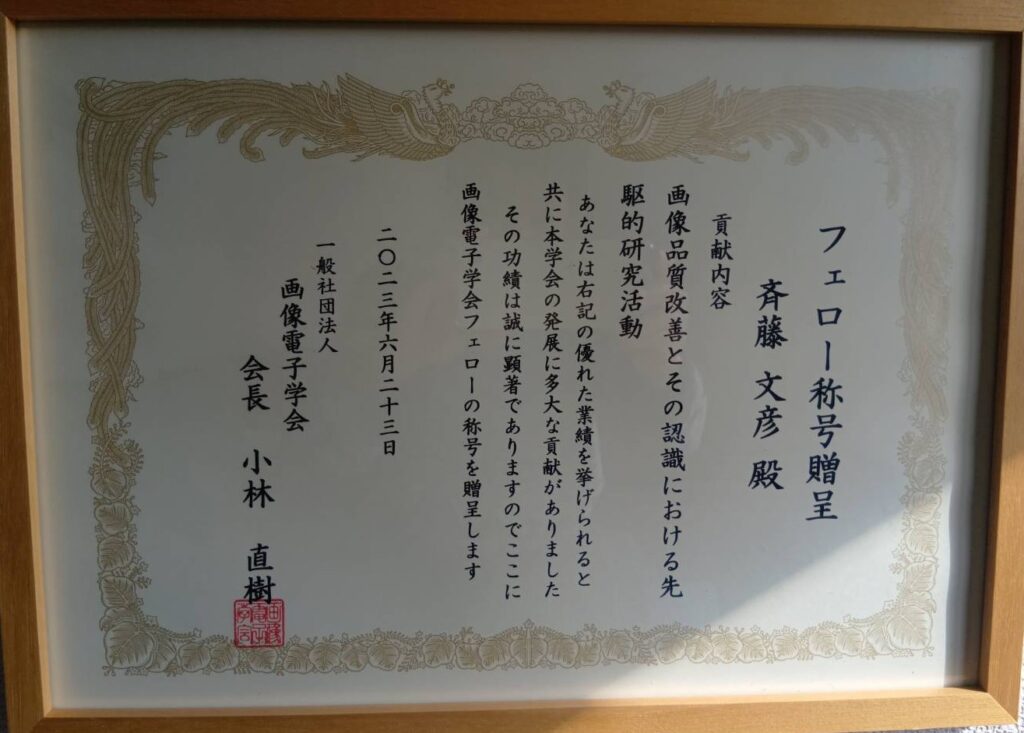 フェロー称号贈呈
斉藤 文彦 殿
貢献内容
画像品質改善とその認識における先
駆的研究活動
あなたは右記の優れた業績を挙げられると
共に本学会の発展に多大な貢献がありました
その功績は誠に顕著でありますのでここに
画像電子学会フェローの称号を贈呈します
二〇二三年六月二十三日
一般社団法人
画像電子学会
会長 小林 直樹